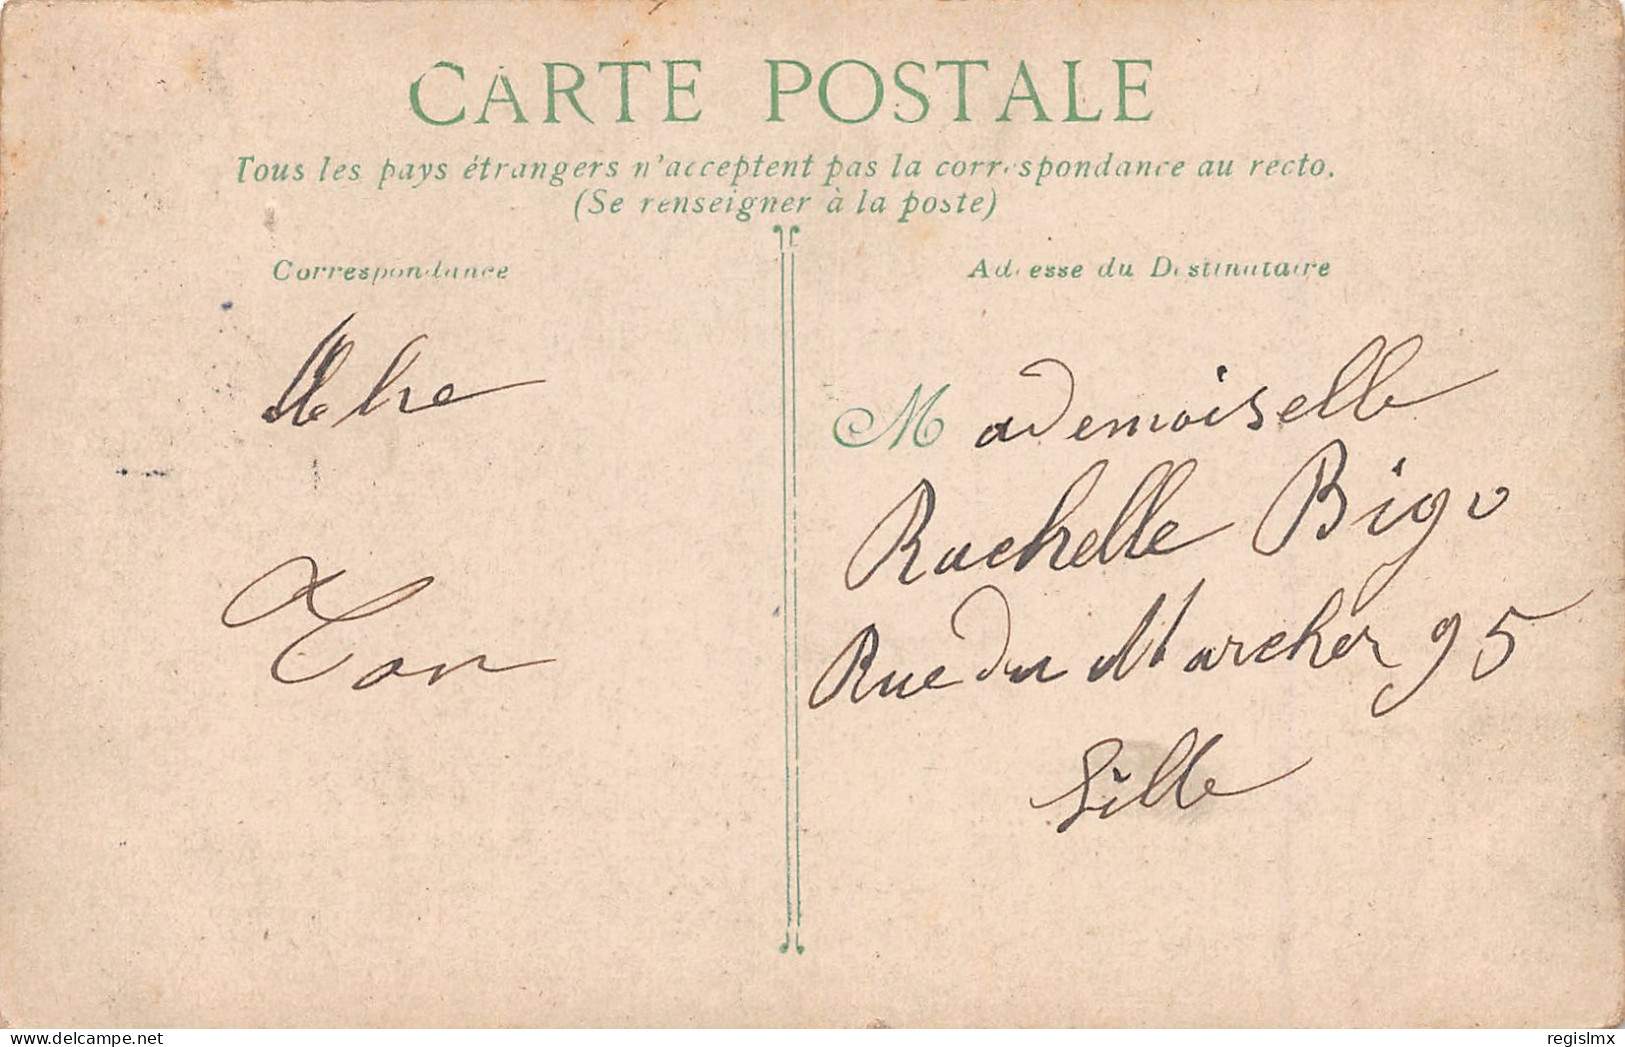 CARTE POSTALE
Tous les pays étrangers n'acceptent pas la correspondance au recto.
(Se renseigner à la poste)
Correspondance
Adresse du Destinataire
Mademoiselle
Rachelle Bigo
Rue du Marcher 95
Lille
regislmx